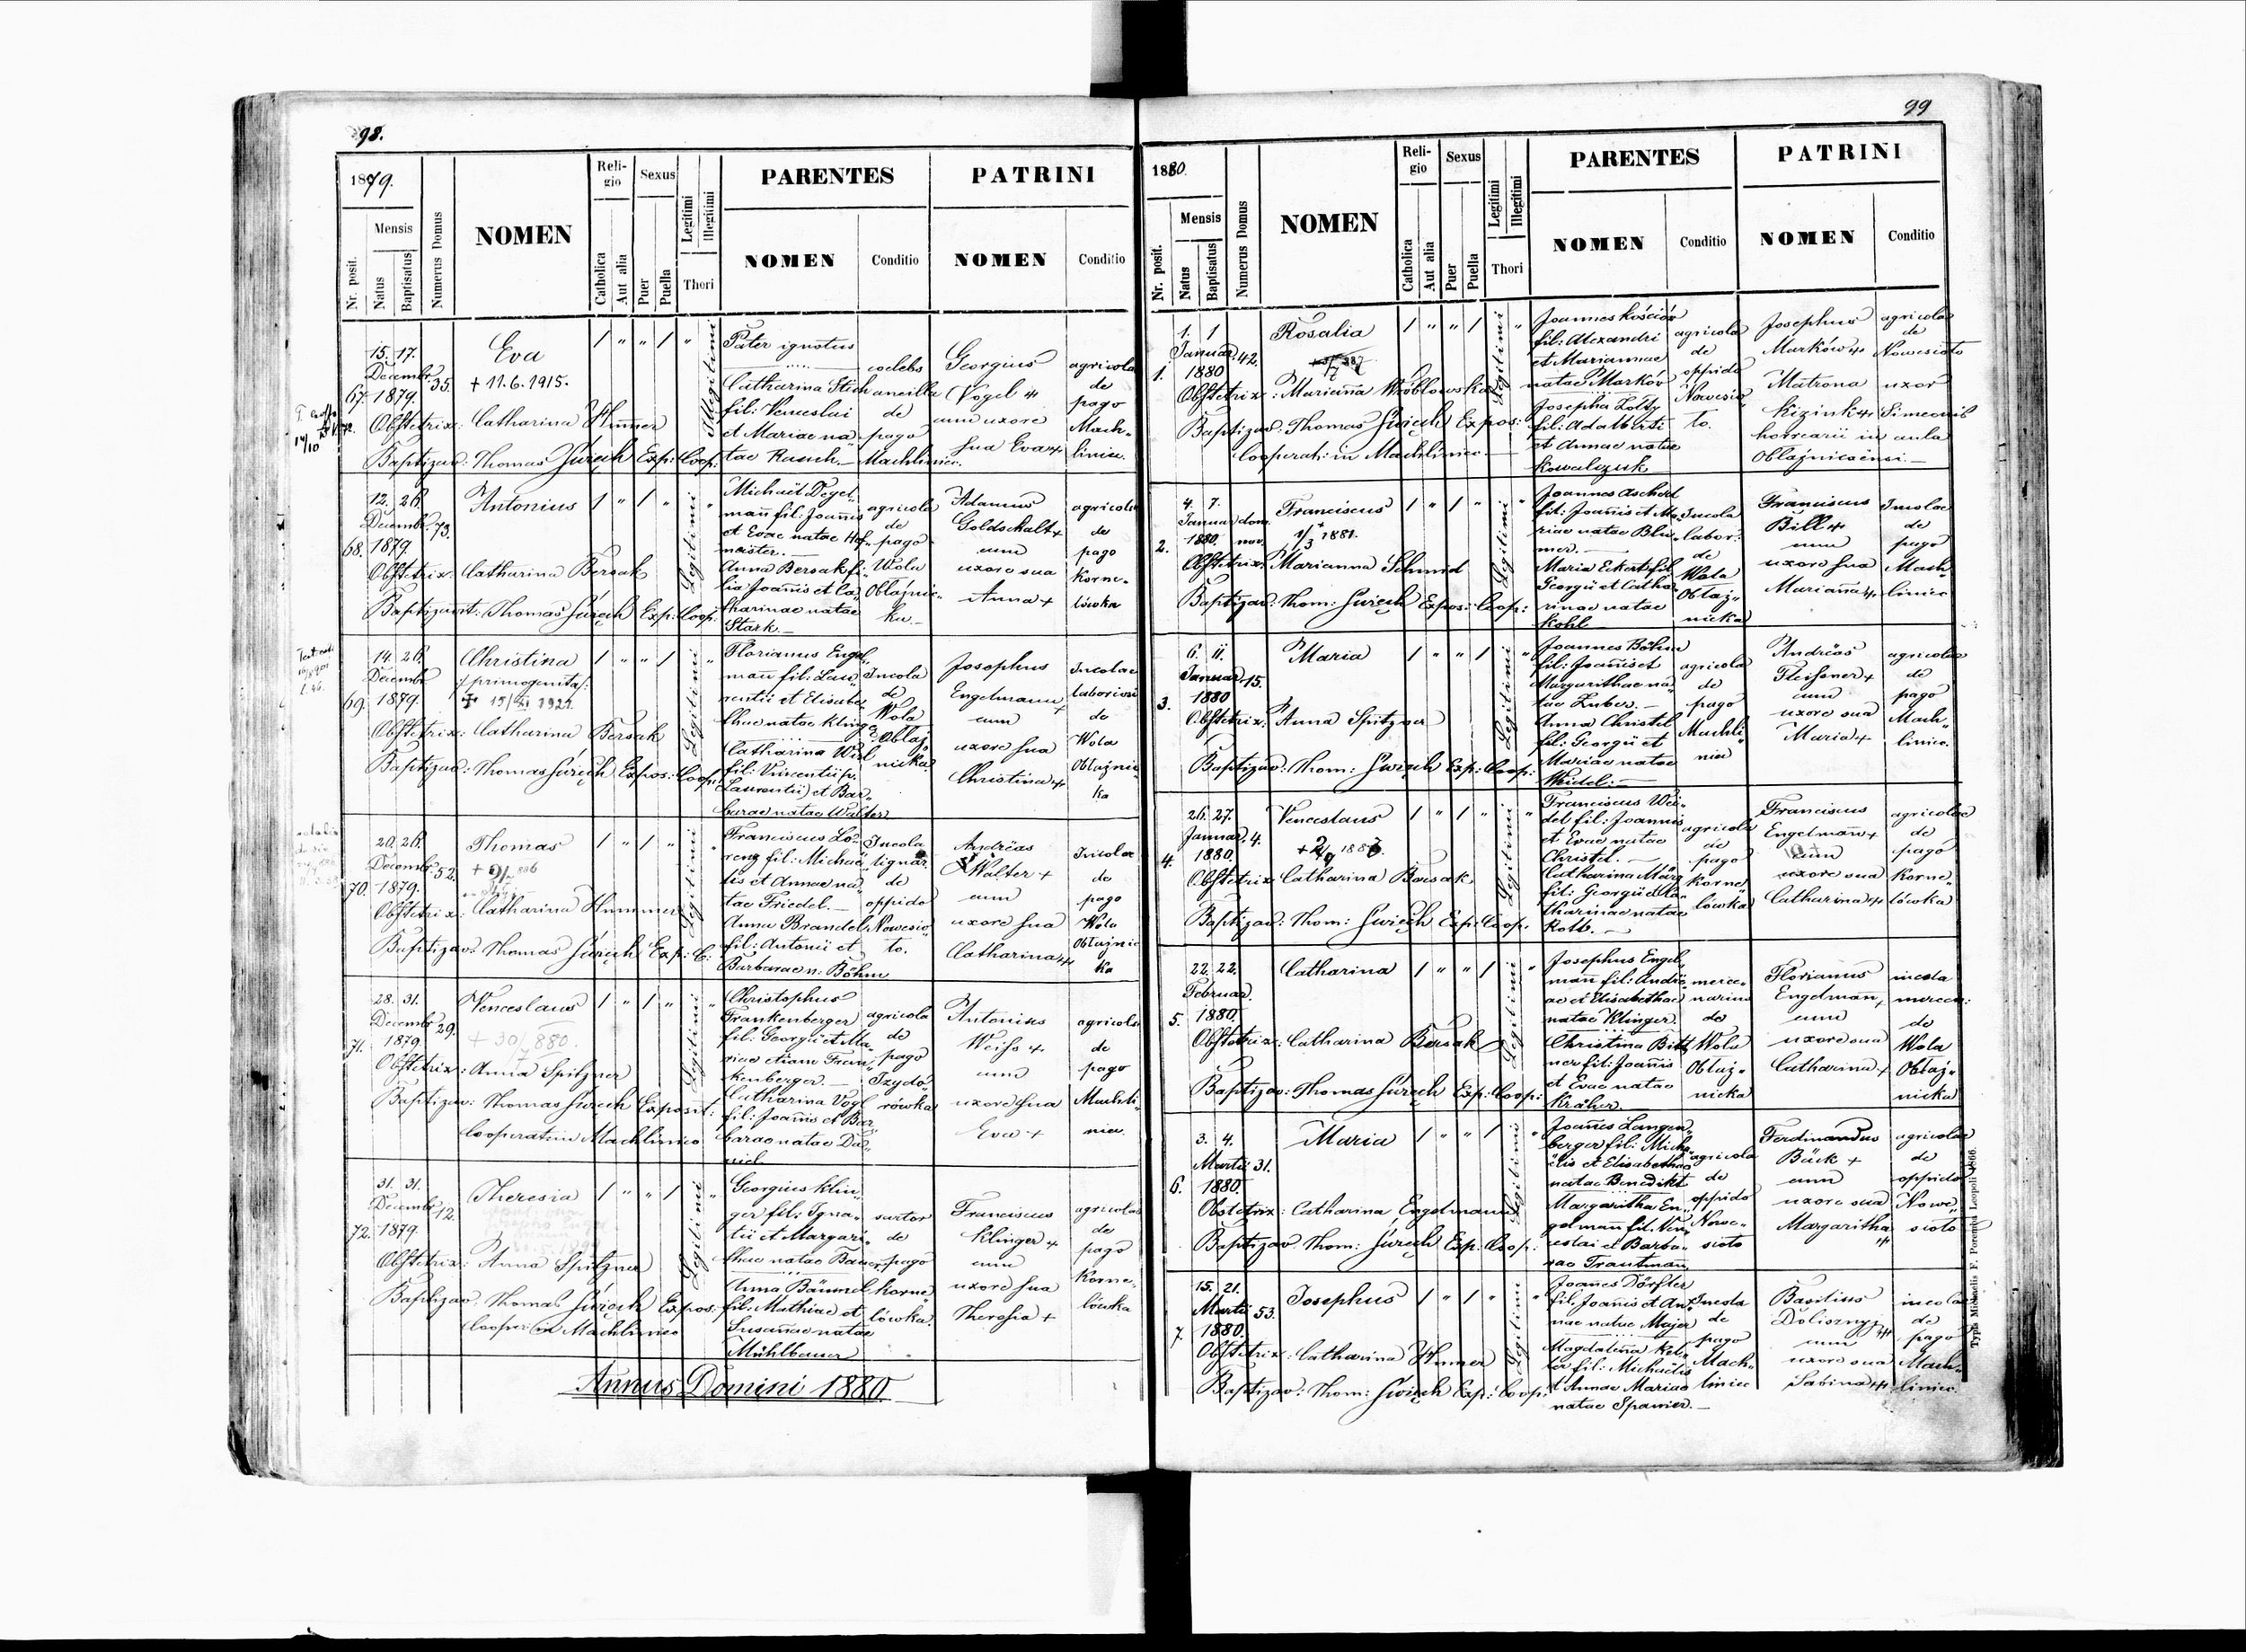 98.
1879.
Nr. posit.
Mensis
Natus
Baptisatus
Numerus Domus
NOMEN
Religio
Catholica
Aut alia
Sexus
Puer
Puella
Legitimi
Illegitimi
Thori
PARENTES
NOMEN
Conditio
PATRINI
NOMEN
Conditio
67.
15. 17.
Decembr
1879.
35.
Eva
+ 11.6.1915.
Obstetrix: Catharina Hummer
Baptizav: Thomas Święch Exp: Coop:
Illegitimi
Pater ignotus
Catharina Stich
fil: Venceslai
et Mariae na„
tae Rausch.
coelebs
ancilla
de
pago
Machliniec.
Georgius
Vogel +
cum uxore
sua Eva +
agricola
de
pago
Mach„
liniec.
68.
12. 26.
Decembr
1879.
73.
Antonius
Obstetrix: Catharina Bersak
Baptizavit: Thomas Święch Exp: Coop:
Legitimi
Michaël Degel„
mañ fil: Joañis
et Evae natae Hof„
meister.
Anna Bersak fi„
lia Joañis et Ca„
tharinae natae
Stark.
agricola
de
pago
Wola
Obłaźnic„
ka.
Adamus
Goldschalt +
cum
uxore sua
Anna +
agricola
de
pago
Korne„
lówka
69.
14. 26.
Decembr
1879.
Christina
/: primogenita :/
Obstetrix: Catharina Bersak
Baptizav: Thomas Święch Expos: Coop:
Legitimi
Florianus Engel„
mañ fil: Lau„
rentii et Elisabe„
thae natae Klinger
Catharina Wirl
fil: Vincentii (v.
Laurentii) et Bar„
barae natae Walter
Incola
de
Wola
Obłaź„
nicka.
Josephus
Engelmann +
cum
uxore sua
Christina +
Incolae
laboriosi
de
Wola
Obłaźnic„
ka
70.
20. 26.
Decembr
1879.
52.
Thomas
Obstetrix: Catharina Hummer
Baptizav: Thomas Święch Exp: C:
Legitimi
Franciscus Lo„
renz fil: Michaë„
lis et Annae na„
tae Friedel.
Anna Brandel
fil: Antonii et
Barbarae n: Böhm
Incola
lignar.
de
oppido
Nowesio„
ło.
Andreas
Walter +
cum
uxore sua
Catharina +
Incolae
de
pago
Wola
Obłaźnic
ka
71.
28. 31.
Decembr
1879.
29.
Venceslaus
+ 30/7 880.
Obstetrix: Anna Spitzner
Baptizav: Thomas Święch Exposit:
Cooperat: in Machliniec
Legitimi
Christophus
Frankenberger
fil: Georgii et Ma„
riae etiam Fran„
kenberger.
Catharina Vogl
fil: Joañis et Bar„
barae natae Da„
niel.
agricola
de
pago
Izydo„
rówka
Antonius
Weiss +
cum
uxore sua
Eva +
agricola
de
pago
Machli„
niec.
72.
31. 31.
Decembr
1879.
12.
Theresia
Obstetrix: Anna Spitzner
Baptizav. Thomas Święch Expos:
Cooper: in Machliniec
Legitimi
Georgius Klin„
ger fil: Igna„
tii et Margari„
thae natae Bauer.
Anna Bäuml
fil: Mathiae et
Susañae natae
Mühlbauer
sartor
de
pago
Korne„
lówka.
Franciscus
Klinger +
cum
uxore sua
Theresia +
agricolae
de
pago
Korne„
lówka
Annus Domini 1880.
99
1880.
Nr. posit.
Mensis
Natus
Baptisatus
Numerus Domus
NOMEN
Religio
Catholica
Aut alia
Sexus
Puer
Puella
Legitimi
Illegitimi
Thori
PARENTES
NOMEN
Conditio
PATRINI
NOMEN
Conditio
1.
1. 1
Januar.
1880
42.
Rosalia
Obstetrix: Mariaña Wróblowska
Baptizav: Thomas Święch Expos:
Cooperat: in Machliniec.
Legitimi
Joannes Kościów
fil: Alexandri
et Mariannae
natae Marków
Josepha Żołty
fil: Adalberti
et Annae natae
Kowalczuk
agricola
de
oppido
Nowesio„
ło.
Josephus
Marków +
Matrona
Kizink +
horrearii in aula
Obłaźnicensi.
agricola
de
Nowesioło
uxor
Simeonis
2.
4. 7.
Januar
1880.
dom.
nov.
Franciscus
+ 1/3 1881.
Obstetrix: Marianna Schmid
Baptizav: Thom: Święch Expos: Coop:
Legitimi
Joannes Ascherl
fil: Joañis et Ma„
riae natae Blu„
mer.
Maria Ekert fil:
Georgii et Catha„
rinae natae
Kohl
Incola
labor:
de
Wola
Obłaź„
nicka
Franciscus
Bill +
cum
uxore sua
Mariaña +
Incolae
de
pago
Mach„
liniec
3.
6. 11.
Januar.
1880
15.
Maria
Obstetrix: Anna Spitzner
Baptizav: Thom: Święch Exp: Coop:
Legitimi
Joannes Böhm
fil: Joañis et
Margarithae na„
tae Zuber.
Anna Christel
fil: Georgii et
Mariae natae
Weidel:
agricola
de
pago
Machli„
niec
Andreas
Fleissner +
cum
uxore sua
Maria +
agricolae
de
pago
Mach„
liniec.
4.
26. 27.
Januar.
1880.
4.
Venceslaus
Obstetrix Catharina Bersak
Baptizav: Thom: Święch Exp: Coop:
Legitimi
Franciscus Wei„
del fil: Joannis
et Evae natae
Christel.
Catharina März
fil: Georgii et Ca„
tharinae natae
Kolb.
agricola
de
pago
Korne„
lówka
Franciscus
Engelmañ +
cum
uxore sua
Catharina +
agricolae
de
pago
Korne„
lówka
5.
22. 22.
Februar.
1880.
Catharina
Obstetrix: Catharina Bersak
Baptizav: Thomas Święch Exp: Coop:
Legitimi
Josephus Engel„
mañ fil: Andre„
ae et Elisabethae
natae Klinger.
Christina Bitt„
ner fil: Joañis
et Evae natae
Kräher.
merce„
narius
de
Wola
Obłaź„
nicka
Florianus
Engelman,
cum
uxore sua
Catharina +
incola
mercen:
de
Wola
Obłaź„
nicka
6.
3. 4.
Martii
1880.
31.
Maria
Obstetrix: Catharina Engelmann
Baptizav. Thom: Święch Exp: Coop:
Legitimi
Joañes Langen„
berger fil: Micha„
ëlis et Elisabethae
natae Benedikt
Margaritha En„
gelmañ fil. Ven„
ceslai et Barba„
rae Trautmañ
agricola
de
oppido
Nowe„
sioło
Ferdinandus
Bäck +
cum
uxore sua
Margaritha
+
agricolae
de
oppido
Nowe„
sioło
7.
15. 21.
Martii
1880.
53.
Josephus
Obstetrix: Catharina Humer
Baptizav: Thom: Święch Exp: Coop:
Legitimi
Joañes Dörfler
fil: Joañis et An„
nae natae Majer
Magdalena Kel„
ler fil: Michaëlis
et Annae Mariae
natae Spanier.
Incola
de
pago
Mach„
liniec
Basilius
Doliszny
cum
uxore sua
Sabina +
incolae
de
pago
Mach„
liniec.
Typis Michaelis F. Poremba Leopoli 1866.